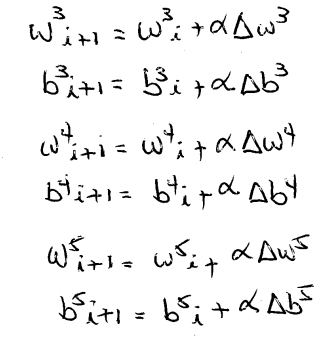 w³ᵢ₊₁ = w³ᵢ + αΔw³
b³ᵢ₊₁ = b³ᵢ + αΔb³
w⁴ᵢ₊ᵢ = w⁴ᵢ + αΔw⁴
b⁴ᵢ₊₁ = b⁴ᵢ + αΔb⁴
w⁵ᵢ₊₁ = w⁵ᵢ + αΔw⁵
b⁵ᵢ₊₁ = b⁵ᵢ + αΔb⁵